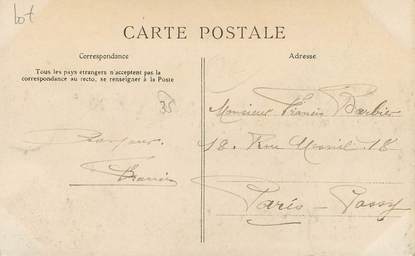 Lot
CARTE POSTALE
Correspondance
Tous les pays étrangers n'acceptent pas la
correspondance au recto, se renseigner à la Poste
35
Bonjour.
Francis
Adresse
Monsieur Francis Barbier
18. Rue Mesnil 18
Paris - Passy